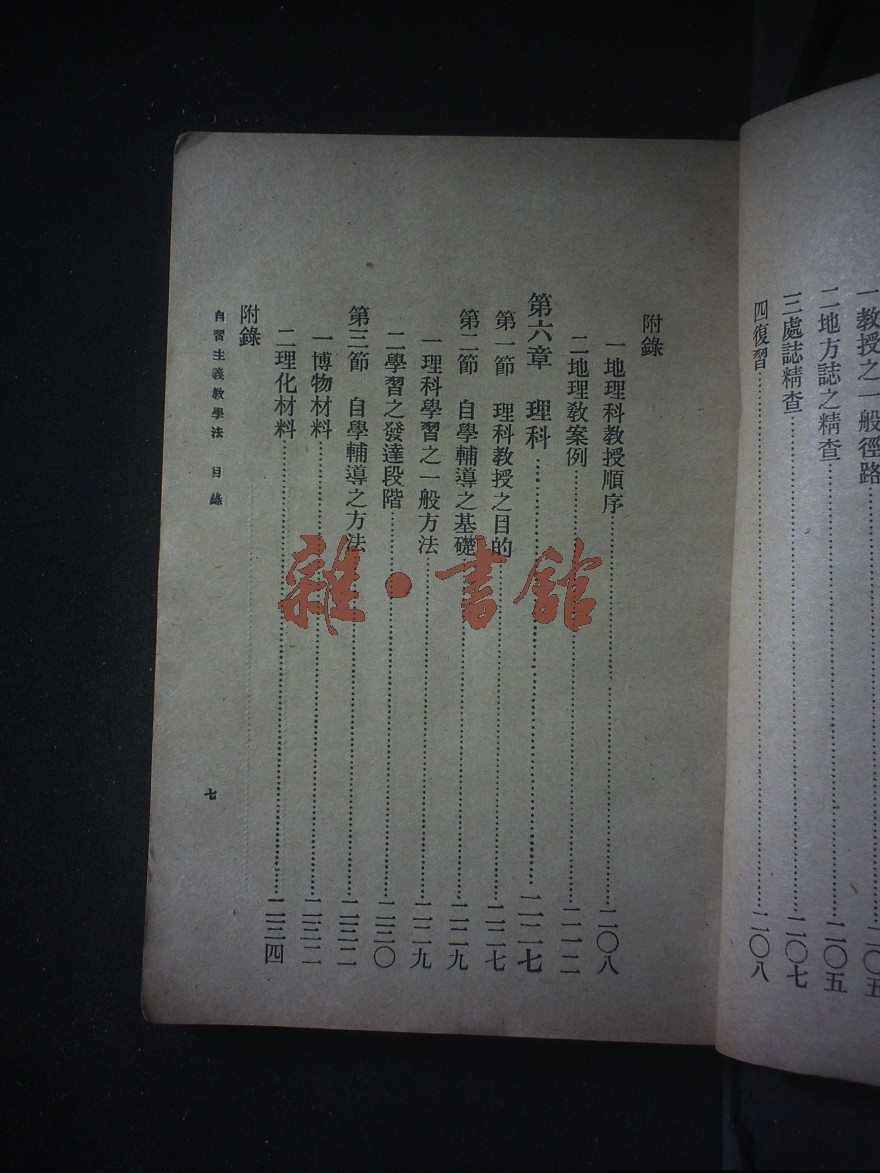 一教授之一般徑路……二〇五
二地方誌之精查……二〇五
三處誌精查……二〇七
四復習……二〇八
附錄
一地理科教授順序……二〇八
二地理教案例……二一二
第六章 理科……二二七
第一節 理科教授之目的……二二七
第二節 自學輔導之基礎……二二九
一理科學習之一般方法……二二九
二學習之發達段階……二三〇
第三節 自學輔導之方法……二三二
一博物材料……二三二
二理化材料……二三四
附錄
自習主義教學法 目錄
七
雜·書館